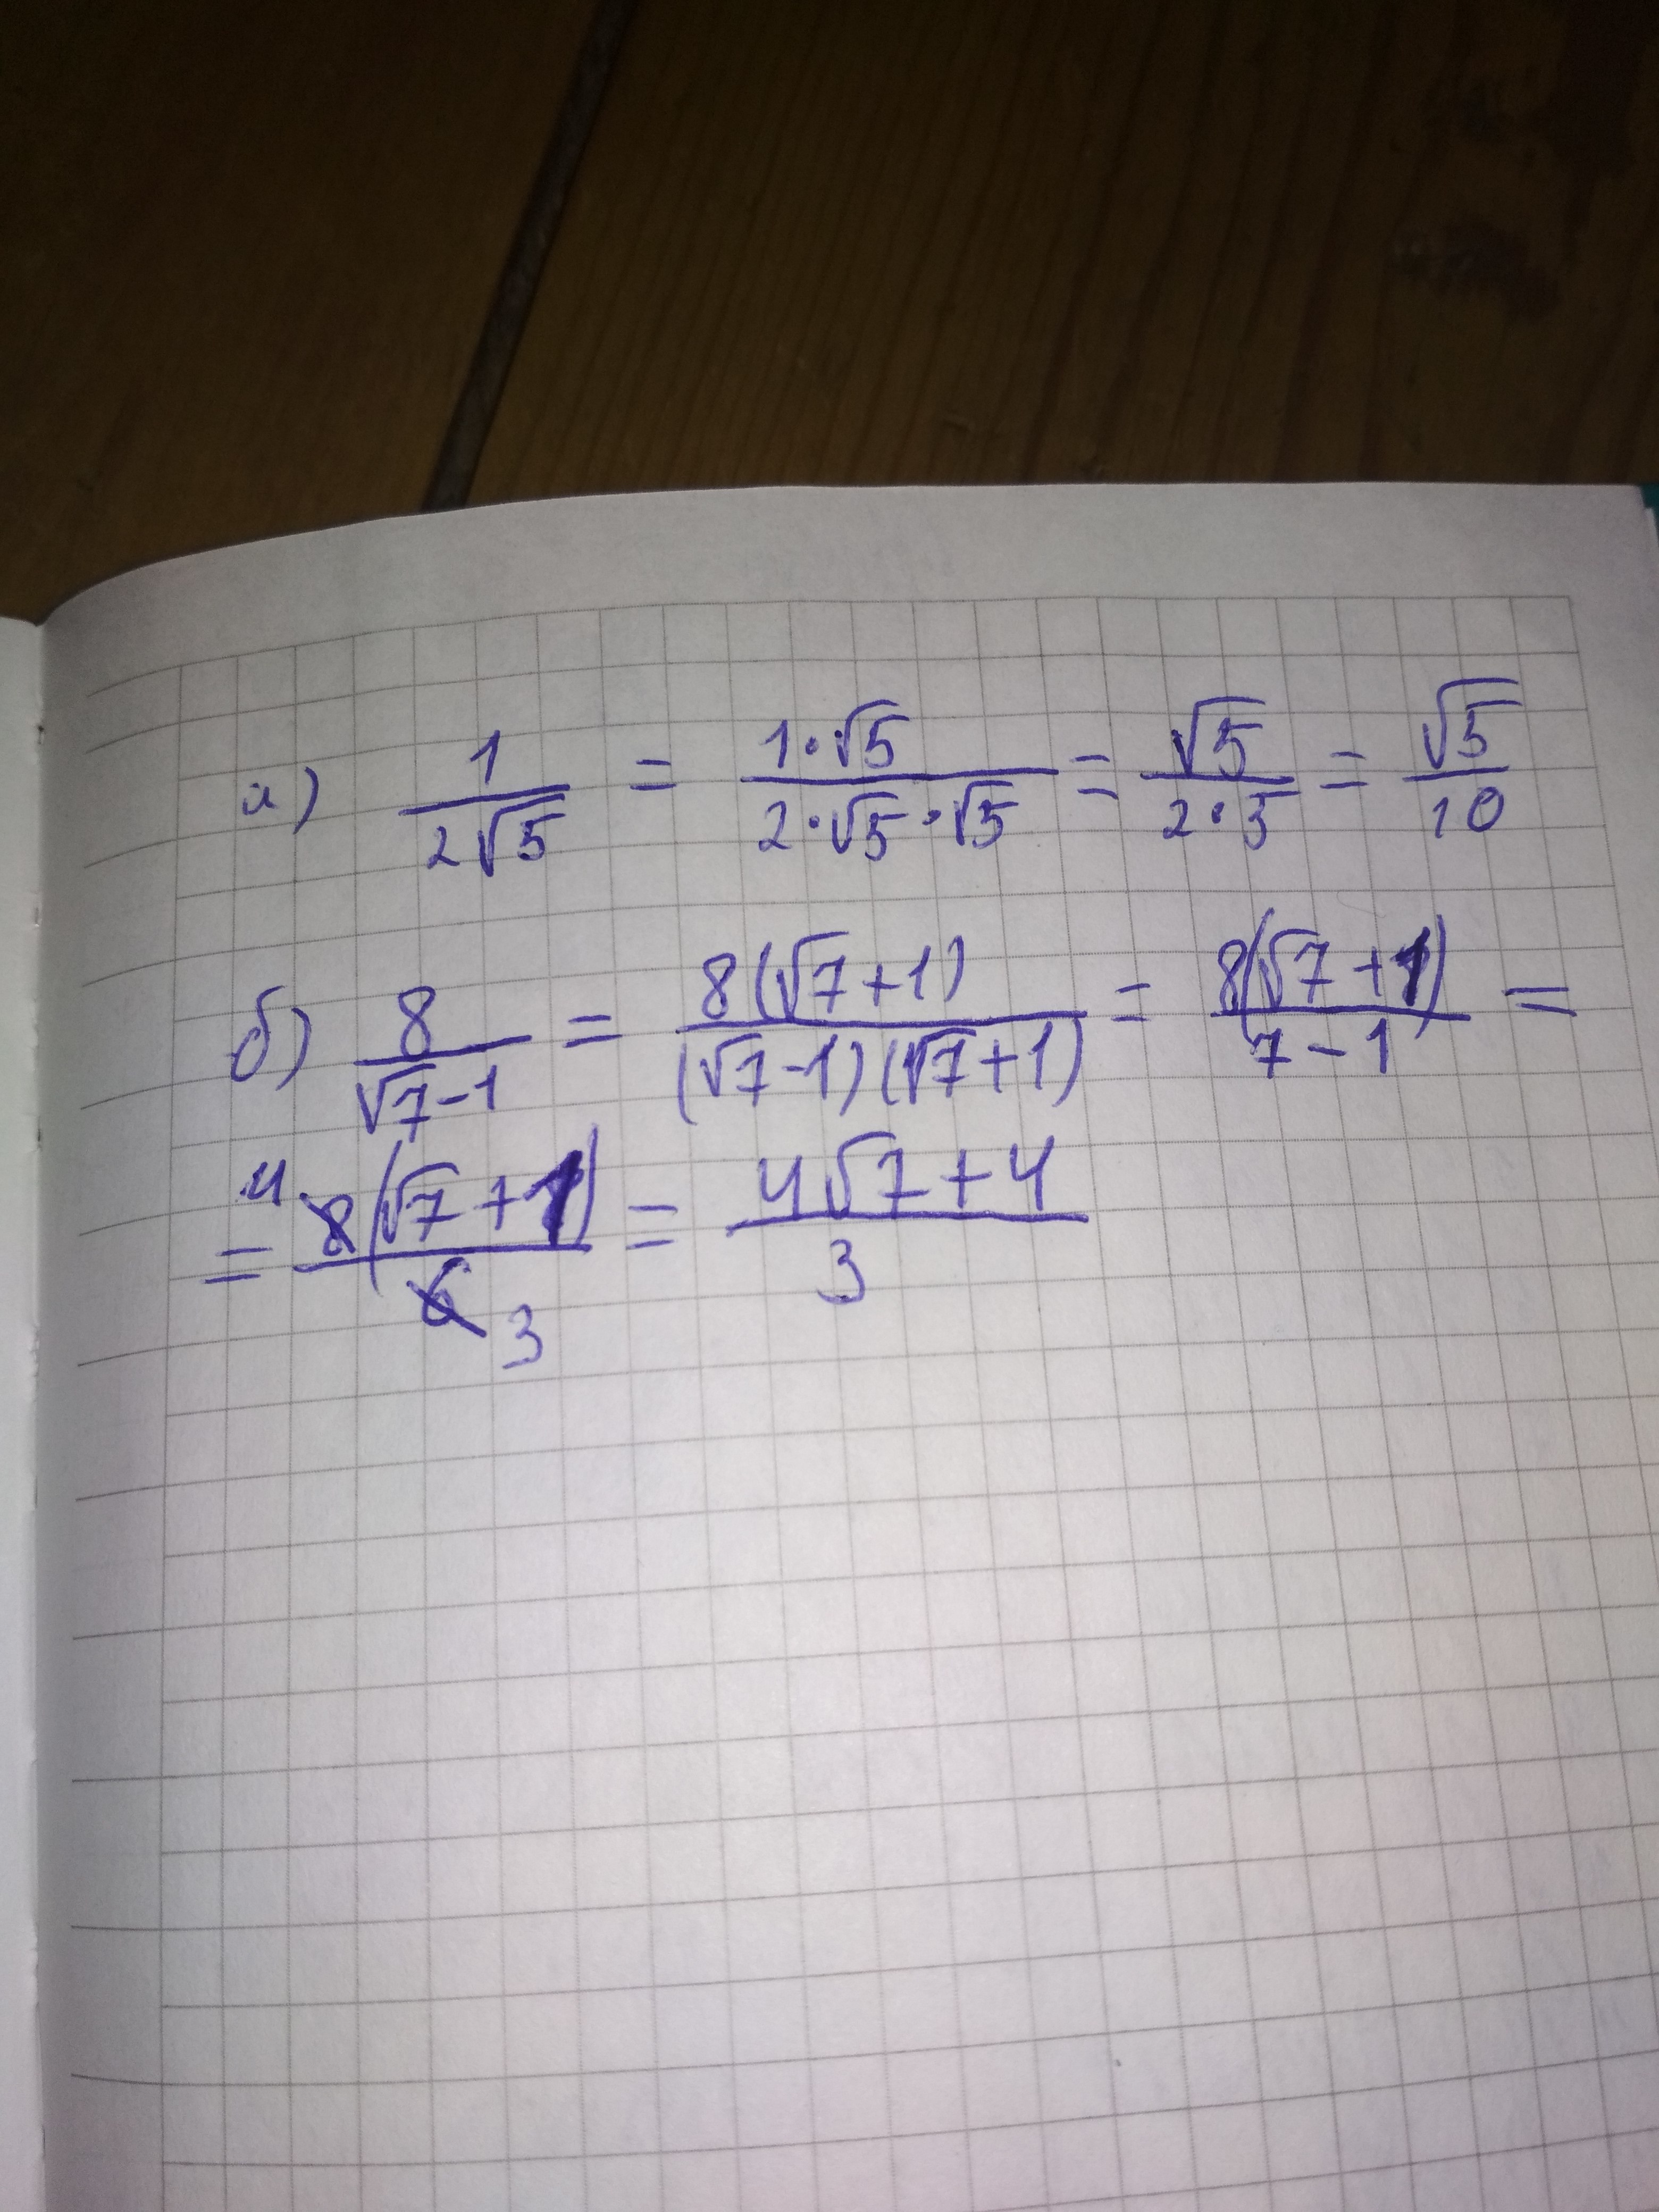 а) 1/(2√5) = (1·√5)/(2·√5·√5) = √5/(2·5) = √5/10
б) 8/(√7-1) = 8(√7+1)/((√7-1)(√7+1)) = 8(√7+1)/(7-1) =
= 4 8(√7+1)/6 3 = (4√7+4)/3